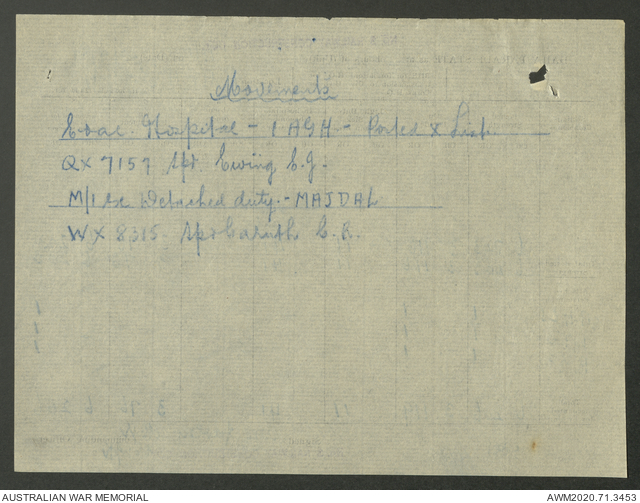 Movements
Evac. Hospital - 1 AGH - Posted X List
QX 7157 Spr. Ewing C.J.
M/I ex Detached duty. - MAJDAL
WX 8315 Spr Caruth C. R.
AUSTRALIAN WAR MEMORIAL
AWM2020.71.3453